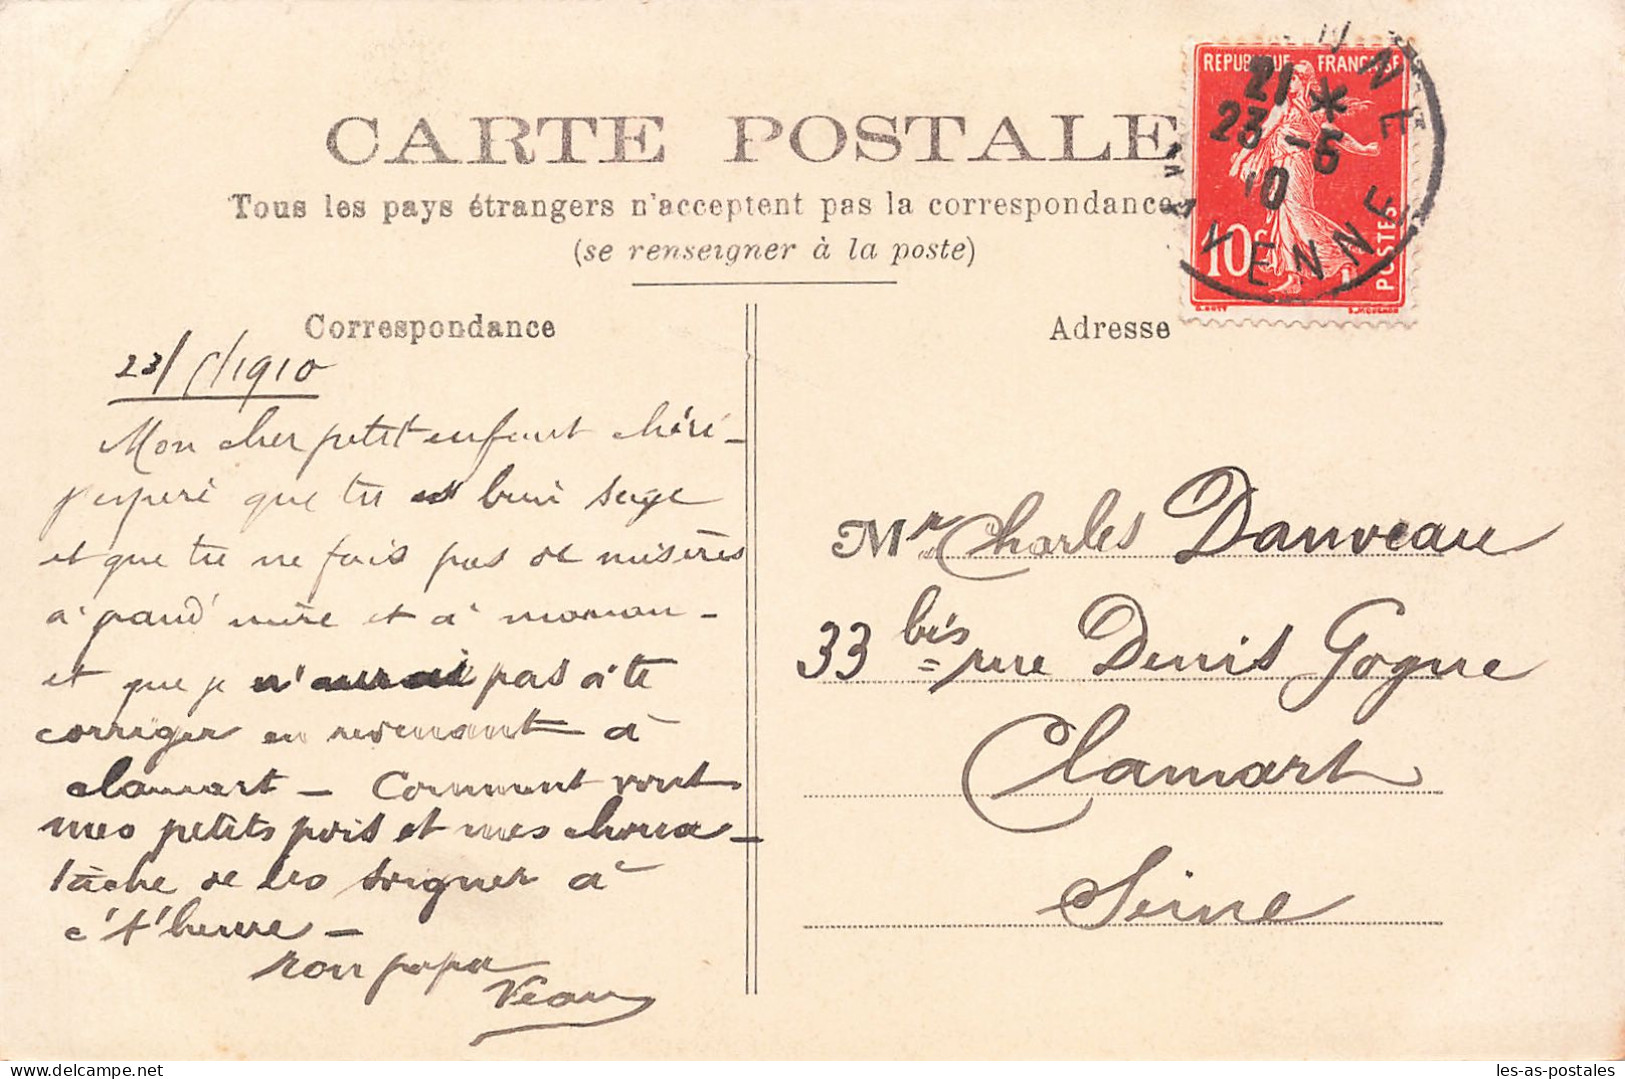 CARTE POSTALE
Tous les pays étrangers n'acceptent pas la correspondance
(se renseigner à la poste)
REPUBLIQUE FRANÇAISE
21 *
23 - 5
10
VIENNE
10c
POSTES
Correspondance
Adresse
23/5/1910
Mon cher petit enfant chéri -
j'esperè que tu est bien sage
et que tu ne fais pas de misères
a grand mère et a maman -
et que je n'aurai pas a te
corriger en revenant à
clamart - Comment vont
mes petits pois et mes choux -
tâche de les soigner à
c't'heure -
ton papa
Veau
Mr Charles Danveau
33 bis rue Denis Gogue
Clamart
Seine
les-as-postales